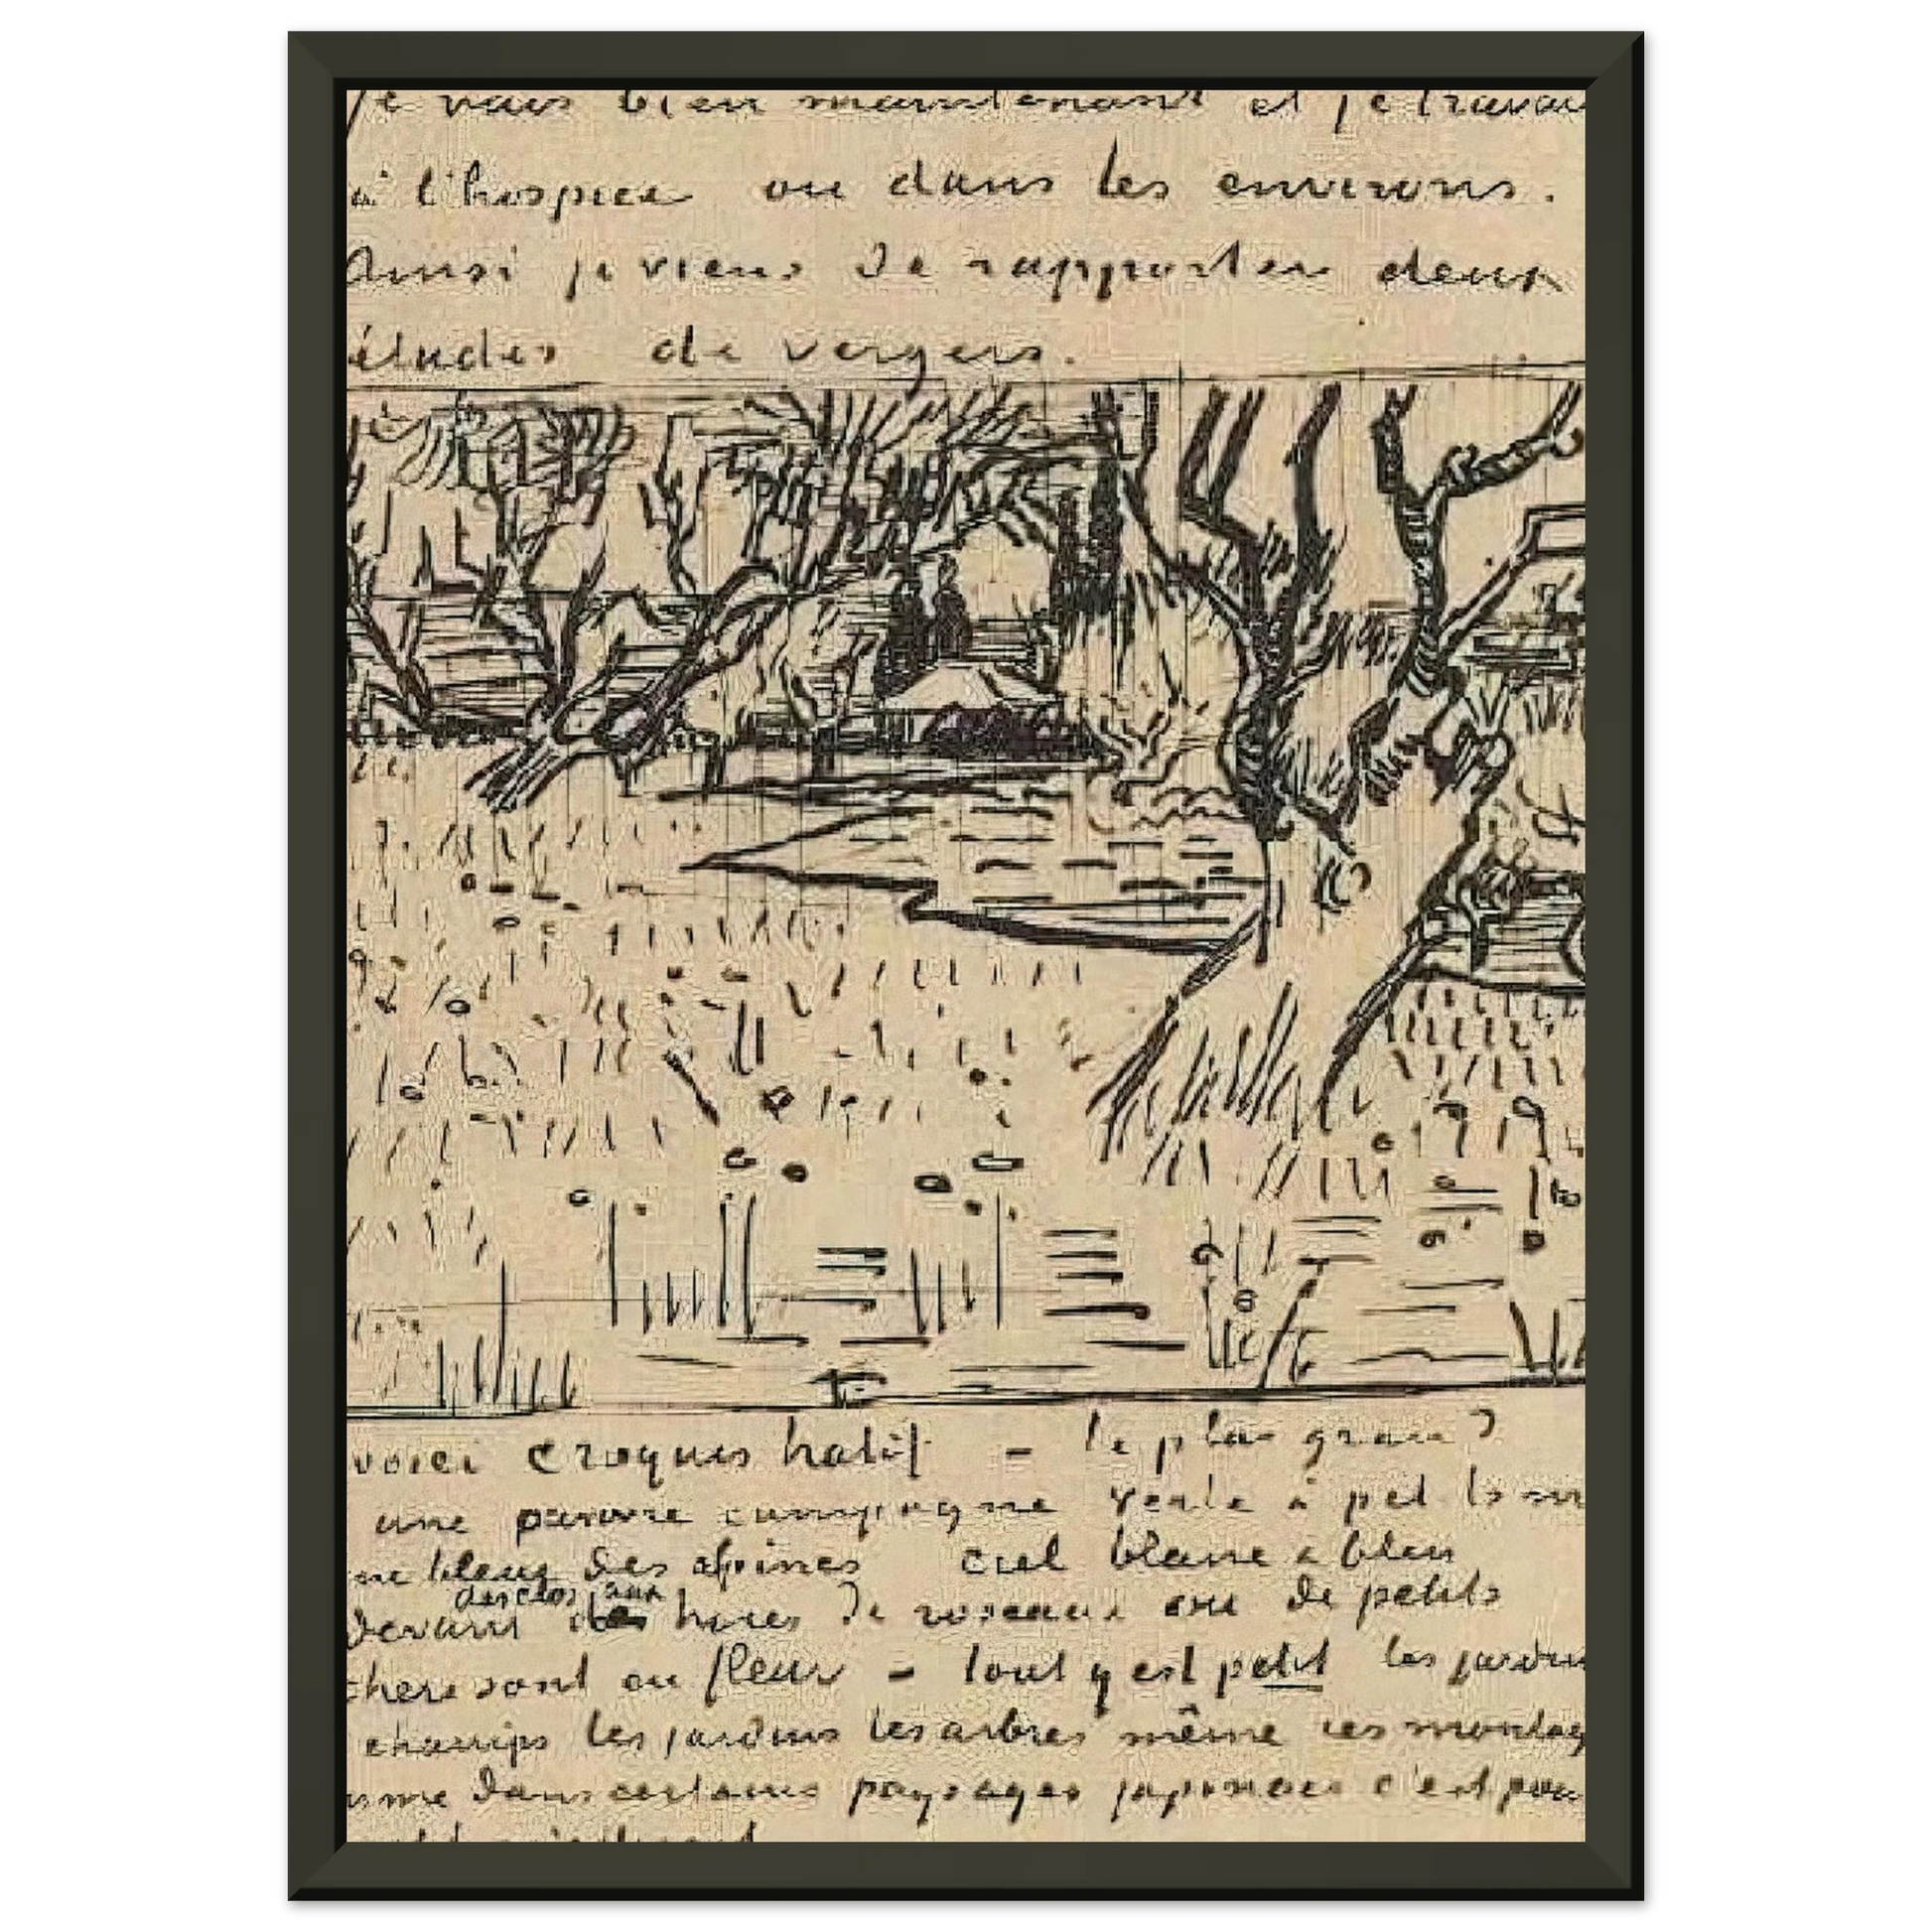 je vais bien maintenant et je travai
à l'hospice ou dans les environs.
Ainsi je viens de rapporter deux
études de vergers.
voici croquis hatif – le plus grand
une pauvre campagne verte à petits
bleues des alpines ciel blanc & bleu
des clos aux
devant haies de roseaux où de petits
chers sont en fleur – tout y est petit les jardins
champs les jardins les arbres même ces montag
mme dans certains paysages japonais c'est pou